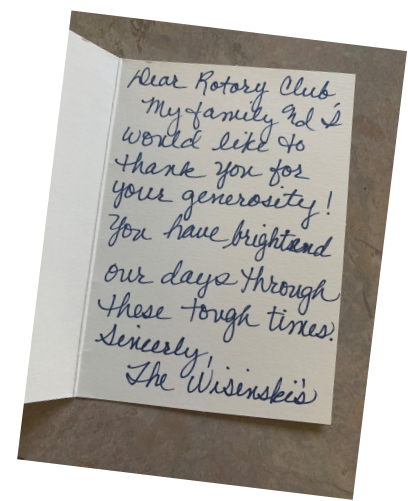 Dear Rotory Club
My family nd I
would like to
thank you for
your generosity!
You have brightend
our days through
these tough times.
Sincerly,
The Wisinski's